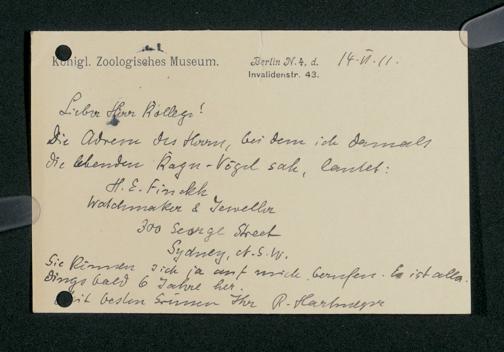 Königl. Zoologisches Museum.
Berlin N. 4, d. 14. VI. 11.
Invalidenstr. 43.
Lieber Herr Kollege!
Die Adresse des Herrn, bei dem ich damals
die lebenden Kagu-Vögel sah, lautet:
H. E. Finckh
Watchmaker & Jeweller
300 George Street
Sydney, N.S.W.
Sie können sich ja auf mich berufen. Es ist aller-
dings bald 6 Jahre her.
Mit besten Grüssen Ihr R. Hartmeyer